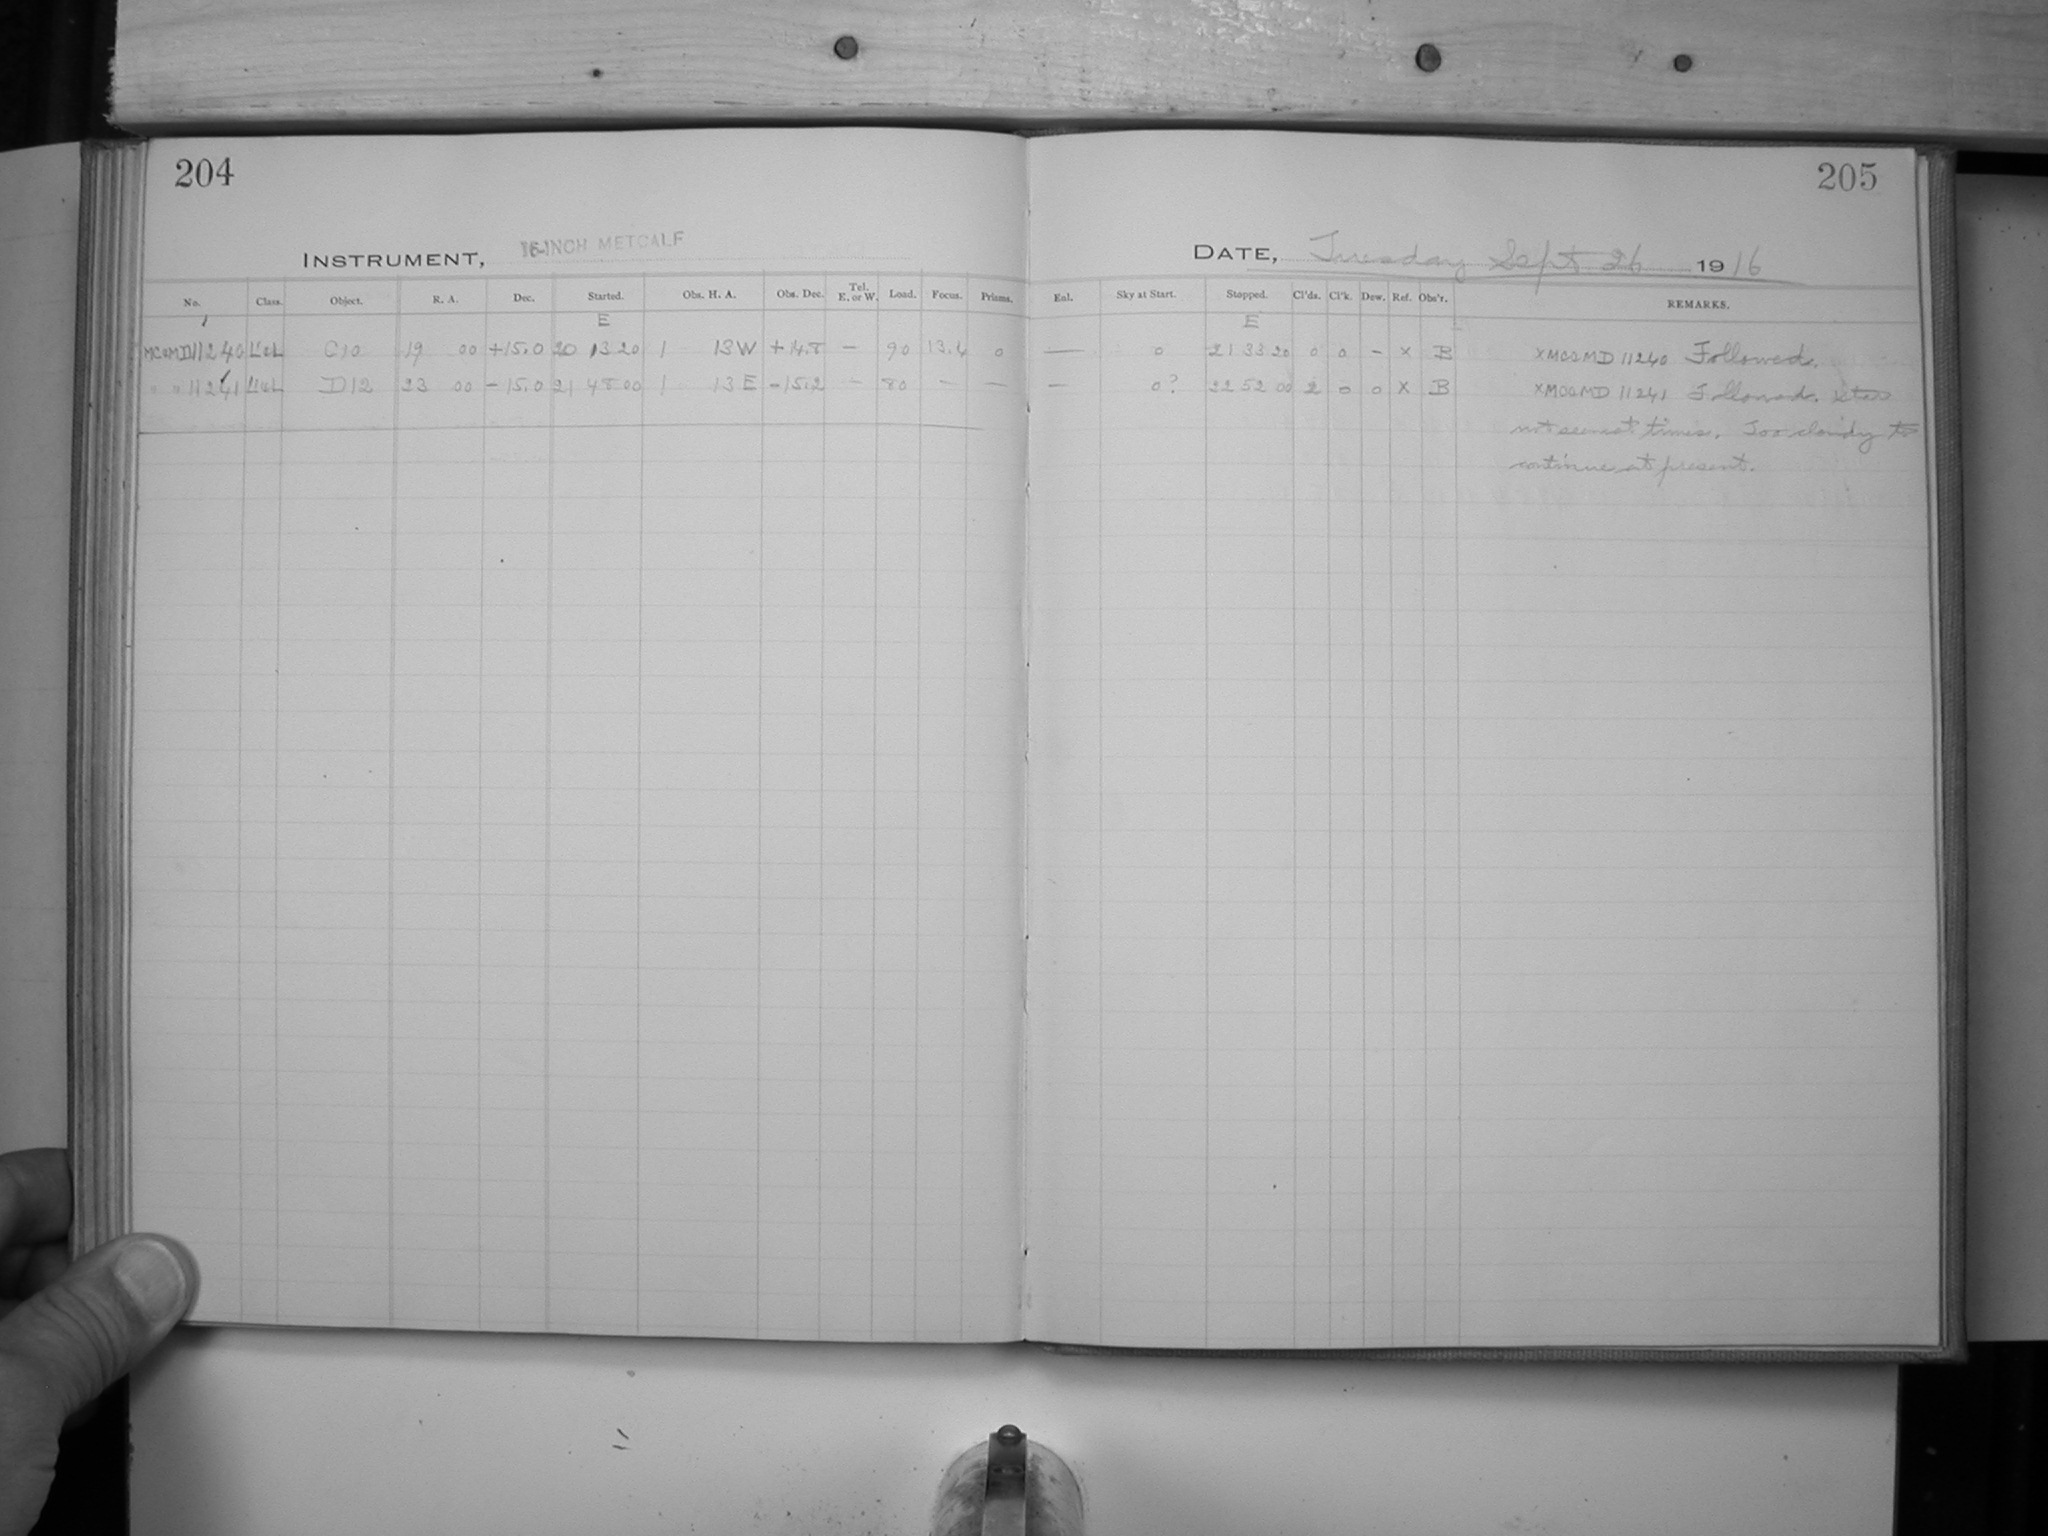 204
205
INSTRUMENT, 16-INCH METCALF
DATE, Tuesday Sept 26 1916
No. Class. Object. R. A. Dec. Started. Obs. H. A. Obs. Dec. Tel. E. or W. Load. Focus. Prisms. Enl. Sky at Start. Stopped. Cl'ds. Cl'k. Dew. Ref. Obs'r. REMARKS.
E E
MC&MD 11240 C10 19 00 +15.0 20 13 20 1 13 W +14.8 – 90 13.4 0 — 0 21 33 20 0 0 – x B XMC&MD 11240 Followed.
" " 11241 D12 23 00 –15.0 21 48 00 1 13 E –15.2 – 80 – — – 0? 22 52 00 2 0 0 x B XMC&MD 11241 Followed. Stars
not seen at times. Too cloudy to
continue at present.